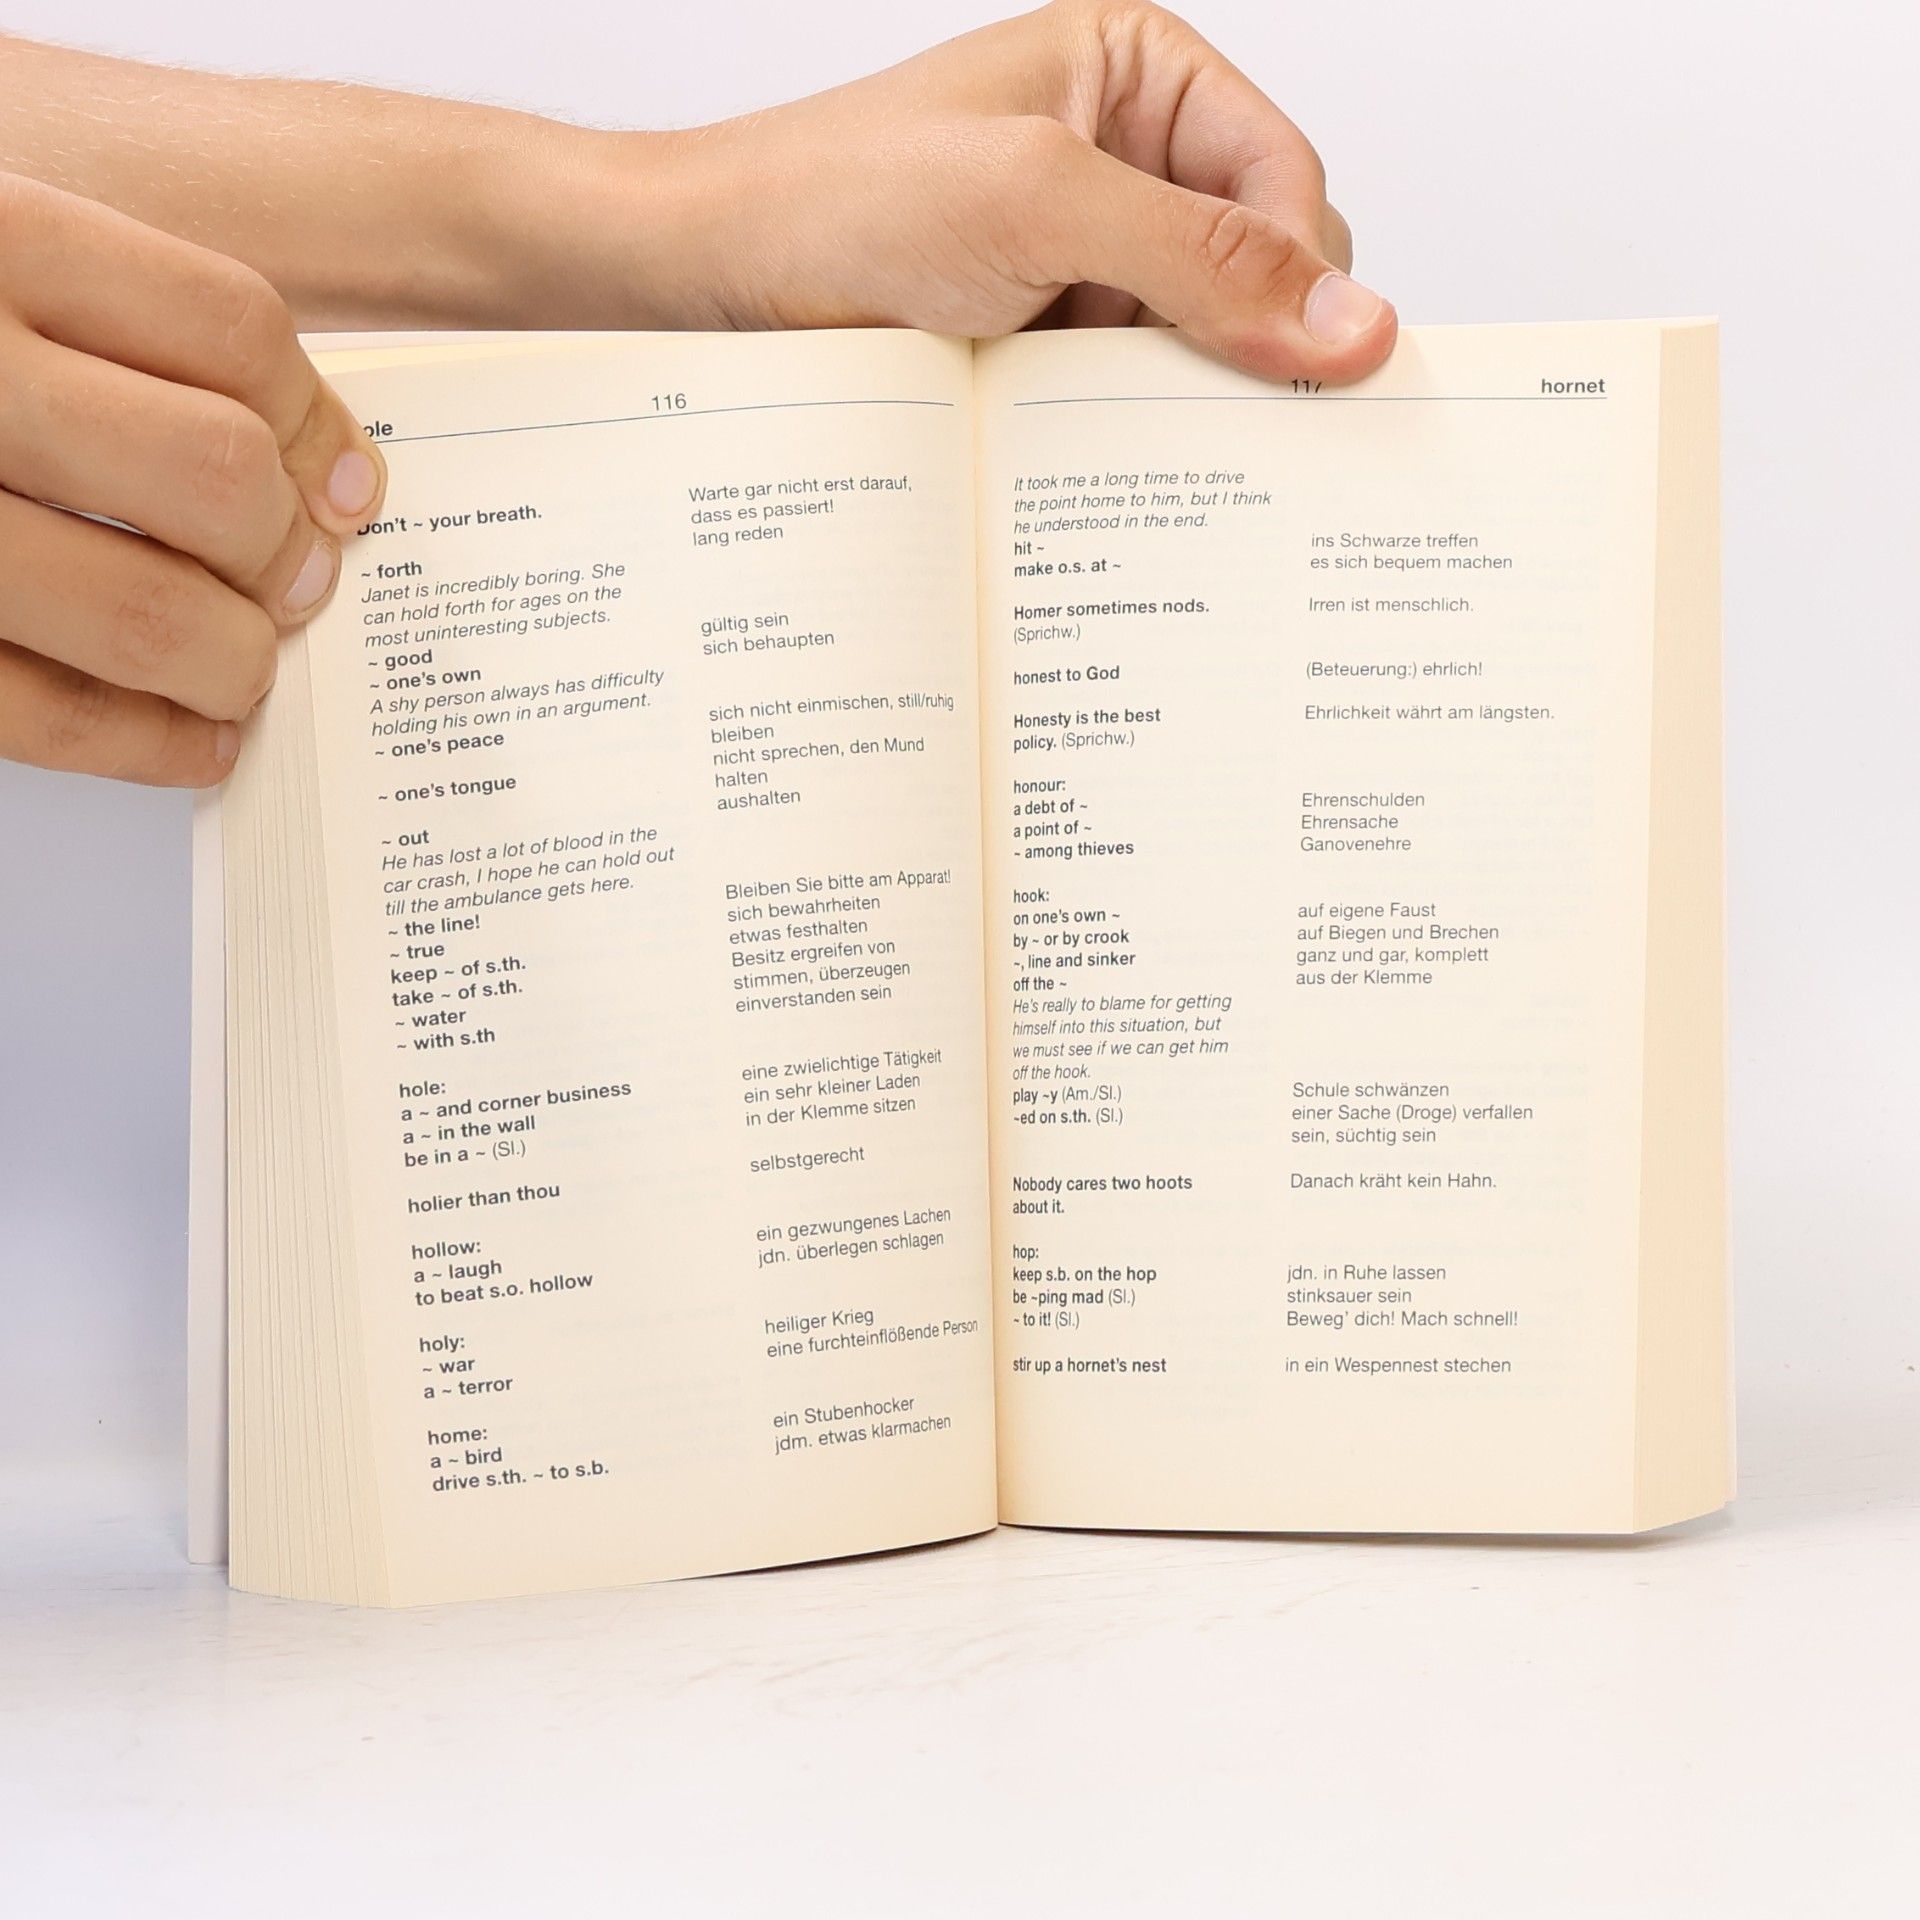 116
Don't ~ your breath.
~ forth
Janet is incredibly boring. She
can hold forth for ages on the
most uninteresting subjects.
~ good
~ one's own
A shy person always has difficulty
holding his own in an argument.
~ one's peace
~ one's tongue
~ out
He has lost a lot of blood in the
car crash, I hope he can hold out
till the ambulance gets here.
~ the line!
~ true
keep ~ of s.th.
take ~ of s.th.
~ water
~ with s.th
hole:
a ~ and corner business
a ~ in the wall
be in a ~ (Sl.)
holier than thou
hollow:
a ~ laugh
to beat s.o. hollow
holy:
~ war
a ~ terror
home:
a ~ bird
drive s.th. ~ to s.b.
Warte gar nicht erst darauf,
dass es passiert!
lang reden
gültig sein
sich behaupten
sich nicht einmischen, still/ruhig
bleiben
nicht sprechen, den Mund
halten
aushalten
Bleiben Sie bitte am Apparat!
sich bewahrheiten
etwas festhalten
Besitz ergreifen von
stimmen, überzeugen
einverstanden sein
eine zwielichtige Tätigkeit
ein sehr kleiner Laden
in der Klemme sitzen
selbstgerecht
ein gezwungenes Lachen
jdn. überlegen schlagen
heiliger Krieg
eine furchteinflößende Person
ein Stubenhocker
jdm. etwas klarmachen
hornet
It took me a long time to drive
the point home to him, but I think
he understood in the end.
hit ~
make o.s. at ~
Homer sometimes nods.
(Sprichw.)
honest to God
Honesty is the best
policy. (Sprichw.)
honour:
a debt of ~
a point of ~
~ among thieves
hook:
on one's own ~
by ~ or by crook
~, line and sinker
off the ~
He's really to blame for getting
himself into this situation, but
we must see if we can get him
off the hook.
play ~y (Am./Sl.)
~ed on s.th. (Sl.)
Nobody cares two hoots
about it.
hop:
keep s.b. on the hop
be ~ping mad (Sl.)
~ to it! (Sl.)
stir up a hornet's nest
ins Schwarze treffen
es sich bequem machen
Irren ist menschlich.
(Beteuerung:) ehrlich!
Ehrlichkeit währt am längsten.
Ehrenschulden
Ehrensache
Ganovenehre
auf eigene Faust
auf Biegen und Brechen
ganz und gar, komplett
aus der Klemme
Schule schwänzen
einer Sache (Droge) verfallen
sein, süchtig sein
Danach kräht kein Hahn.
jdn. in Ruhe lassen
stinksauer sein
Beweg' dich! Mach schnell!
in ein Wespennest stechen